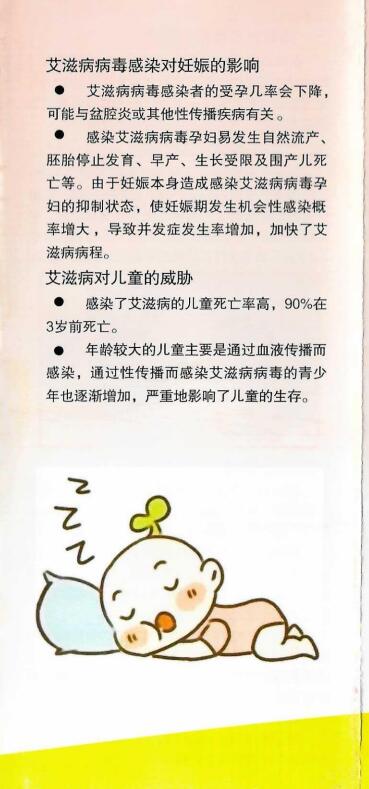 艾滋病病毒感染对妊娠的影响
● 艾滋病病毒感染者的受孕几率会下降，
可能与盆腔炎或其他性传播疾病有关。
● 感染艾滋病病毒孕妇易发生自然流产、
胚胎停止发育、早产、生长受限及围产儿死
亡等。由于妊娠本身造成感染艾滋病病毒孕
妇的抑制状态，使妊娠期发生机会性感染概
率增大，导致并发症发生率增加，加快了艾
滋病病程。
艾滋病对儿童的威胁
● 感染了艾滋病的儿童死亡率高，90%在
3岁前死亡。
● 年龄较大的儿童主要是通过血液传播而
感染，通过性传播而感染艾滋病病毒的青少
年也逐渐增加，严重地影响了儿童的生存。
Z
Z
Z